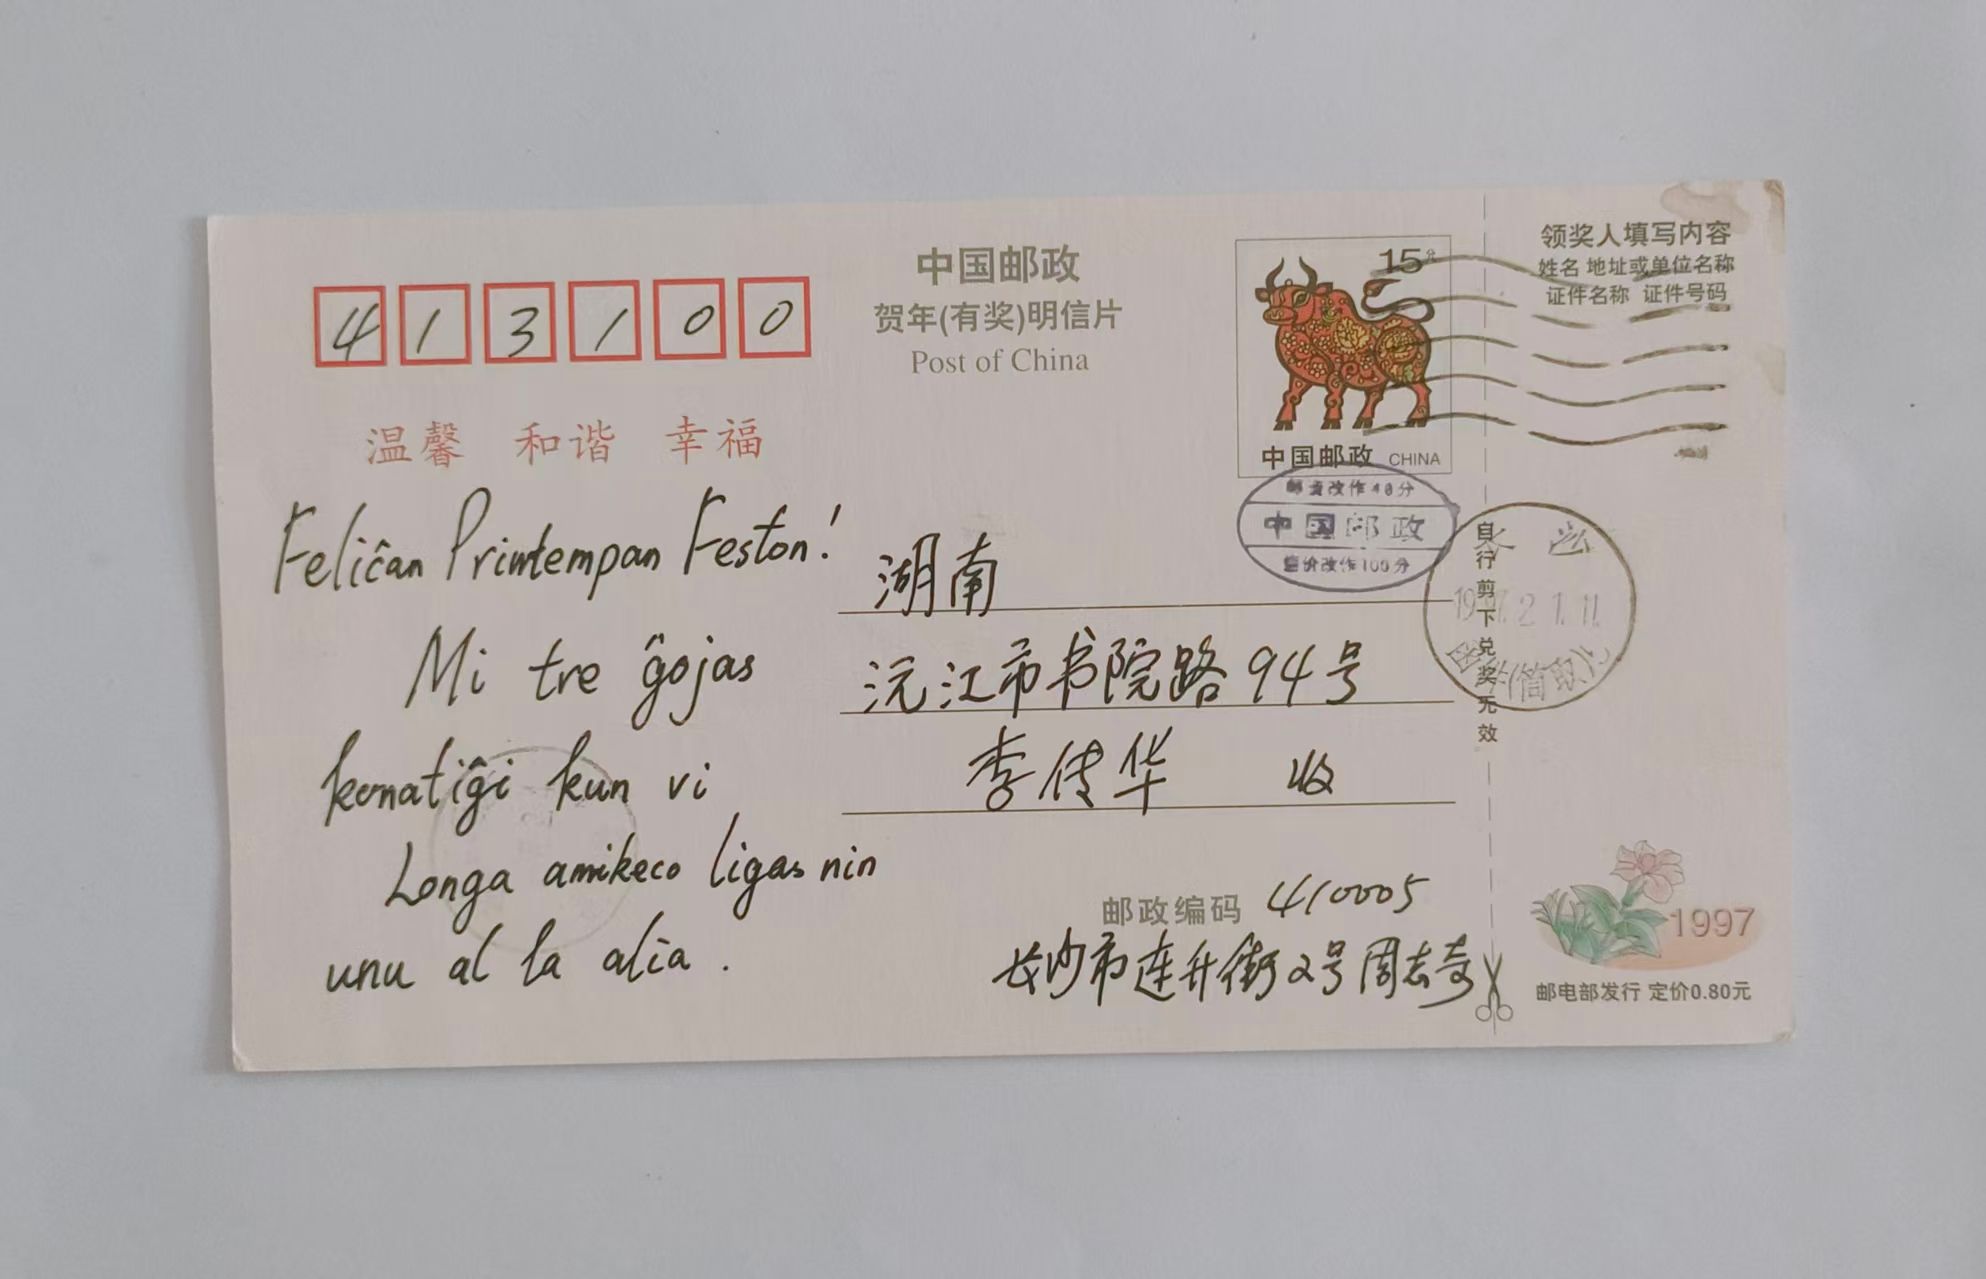 413100
中国邮政
贺年(有奖)明信片
Post of China
15分
中国邮政 CHINA
领奖人填写内容
姓名 地址或单位名称
证件名称 证件号码
温馨 和谐 幸福
Feliĉan Printempan Feston!
Mi tre ĝojas
konatiĝi kun vi
Longa amikeco ligas nin
unu al la alia.
邮资改作40分
中国邮政
售价改作100分
湖南
沅江市书院路94号
李传华 收
邮政编码 410005
长沙市连升街2号周志奇
自行剪下兑奖无效
1997.2.1.11
1997
邮电部发行 定价0.80元